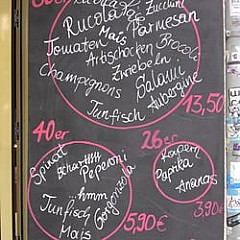 Zucchini
Rucola
Parmesan
Tomaten Mais
Artischocken Brocoli
Champignons Zwiebeln
Salami
Thunfisch Aubergine
13,50
40er 26er
Spinat scharf!!!! Peperoni
hmm
Tunfisch Gorgonzola
Mais
5,90€
Kapern
Paprika
Ananas
3,90€